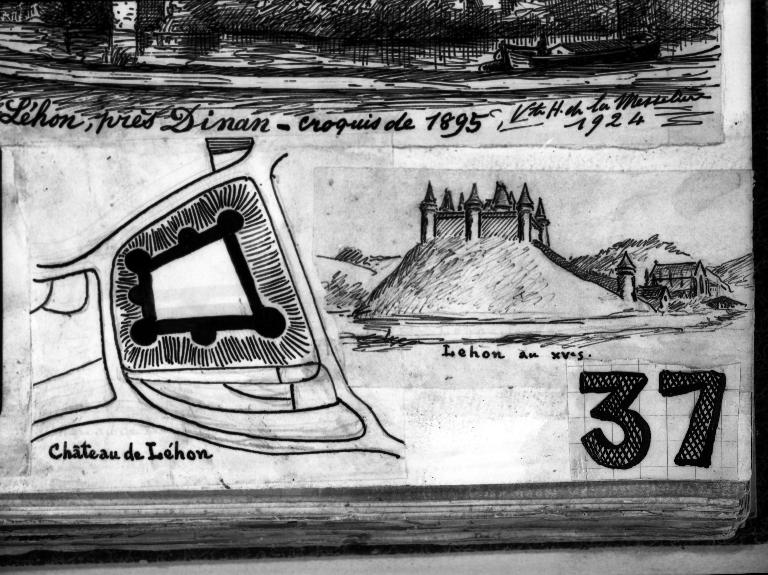 Léhon, près Dinan - croquis de 1895, Vte H. de la Messelière
1924
Lehon au XVe s.
37
Château de Léhon